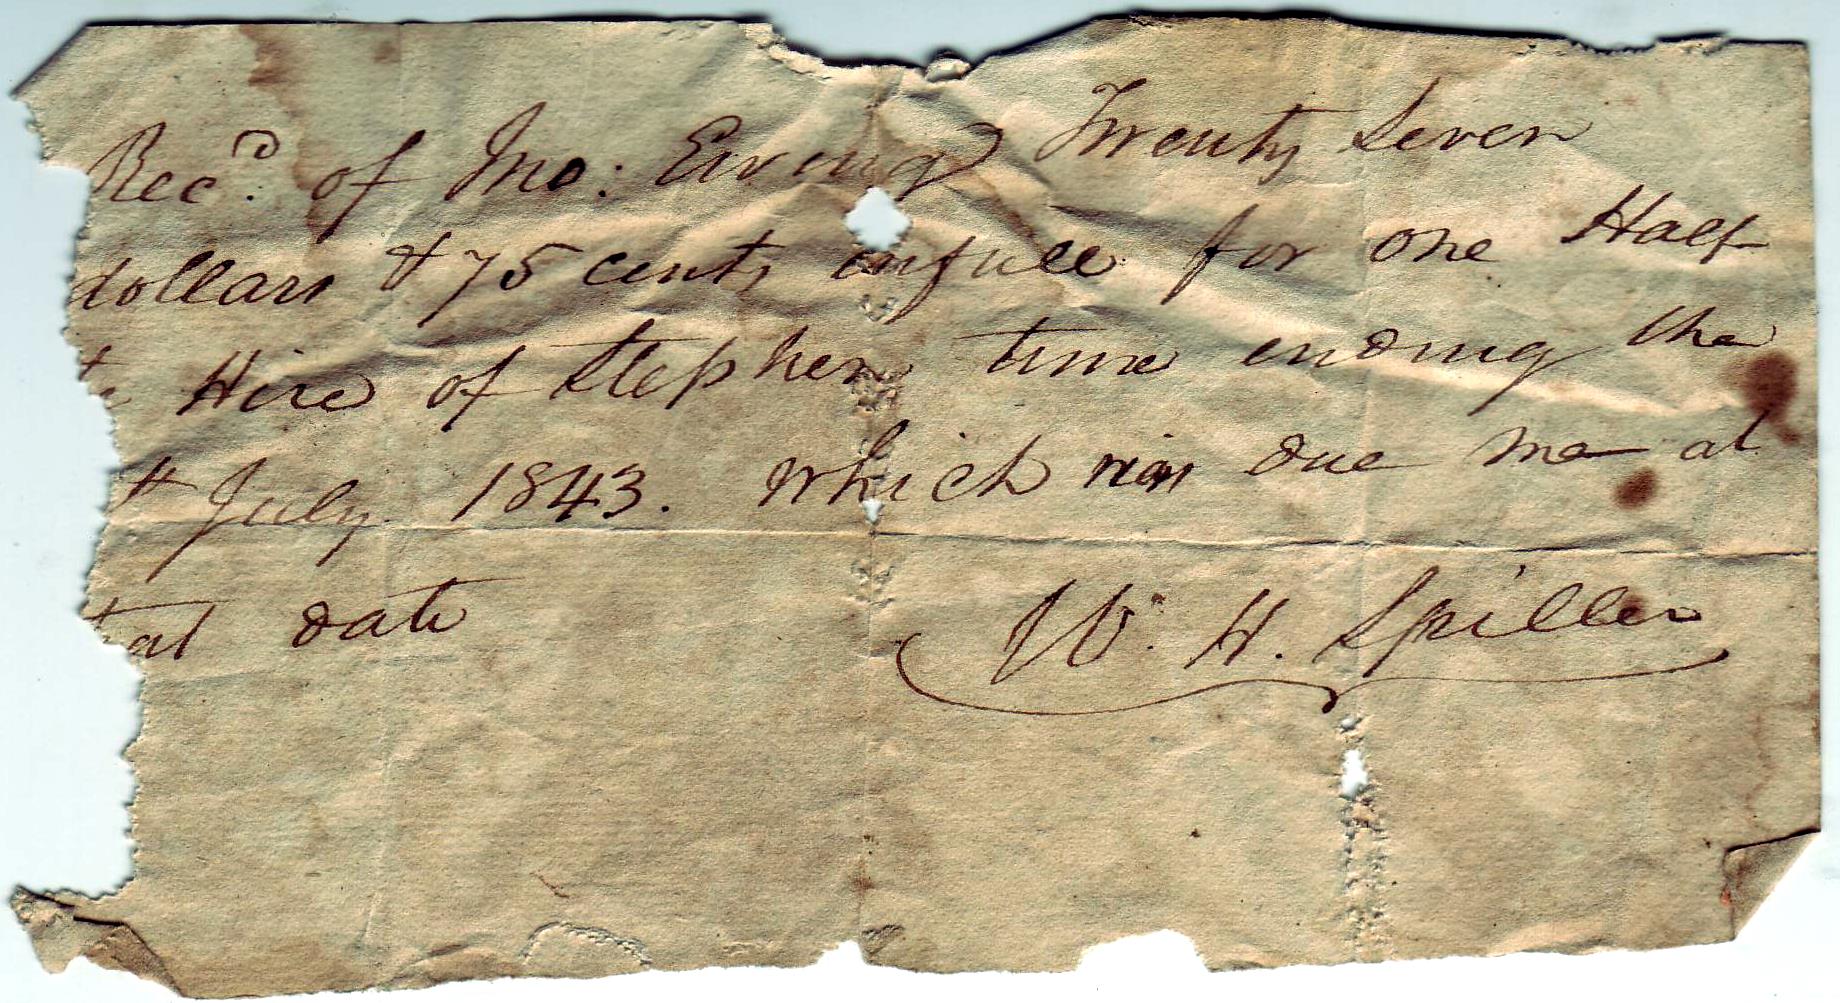 Rec.d of Jno: Ewing Twenty Seven
dollars & 75 cents in full for one Half
Hire of Stephen time ending the
July 1843. which was due me at
at date
W. H. Spiller